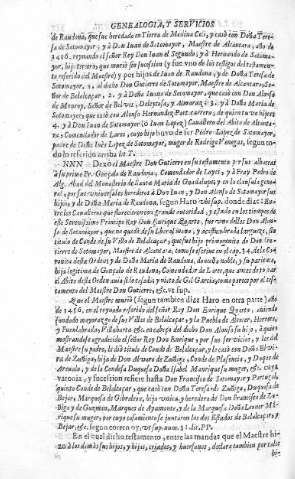 GENEALOGIA, Y SERVICIOS
de Raudona, que fue heredada en Tierra de Medina Celi, y casò con Doña Tere-
sa de Sotomayor, y à Don Juan de Sotomayor, Maestre de Alcantara, año de
1416. reynando el señor Rey Don Juan el Segundo, y à Hernando de Sotoma-
yor, hijo tercero, que murió sin sucesion (y fue uno de los testigos del testamen-
to referido del Maestre) y por hijos de Juan de Raudona, y de Doña Teresa de
Sotomayor, 1. al dicho Don Gutierre de Sotomayor, Maestre de Alcantara, Se-
ñor de Belalcazar, 2. y à Doña Juana de Sotomayor, que casò con Don Alonso
de Monroy, Señor de Belvis, Deleytosa, y Almaraz; 3. y à Doña Maria de
Sotomayor, que casò con Alonso Hernandez
4. y à Juan de Sotomayor (ò Juan Lopez) Cavallero del Abito de Alcanta-
ra, Comendador de Lares, cuyo hijo huvo de ser Pedro Lopez de Sotomayor,
padre de Doña Inès Lopez de Sotomayor, muger de Rodrigo Venegas, segun to-
do lo referido arriba
NNN Dexò el Maestre Don Gutierre en su testamento por sus albaceas
à su primo Fr. Gonçalo de Raudona, Comendador de Lares, y à Fray Pedro de
Alg. Abad del Monasterio de Santa Maria de Guadalupe, y con la
por sus universales herederos à Don Juan, y Don Alonso de Sotomayor sus
hijos, y de Doña Maria de Raudona, segun Haro ubi sup. donde dice:
los Cavalleros que florecieron en grande autoridad, y estado en los tiempos de
este Serenissimo Principe Rey Don Enrique Quarto, fue uno dellos Don Alonso
de Sotomayor, que no quedò de su
titulo de Conde de su Villa de Belalcazar, que fue hijo primogenito de Don Gu-
tierre de Sotomayor, Maestre de Alcantara, como se escrive en el cap. 14. de la Co-
ronica desta Orden, y de Doña Maria de Raudona, donzella noble, y su parienta,
hija legitima de Gonçalo de Raudona, Comendador de Lares, que antes de tomar
el Abito desta Orden avia sido casado, y vistas de Gil Garcia, como parece por el tes-
tamento del Maestre Don Gutierre, &c. ut sup.
Que el Maestre muriò (segun tambien dize Haro en otra parte) año
de 1456. en el reynado referido del señor Rey Don Enrique Quarto, aviendo
fundado mayorazgo de sus Villas de Belalcazar, y la Puebla de Alcocer, Herrera,
y Fuenlabrada, Villaharta &c. en cabeça del dicho Don Alonso su hijo, à quien
mostrandose agradecido el señor Rey Don Enrique, por sus servicios, y los del
Maestre su padre, le diò titulo de Conde de Belalcazar, y le casò con Doña Elvi-
ra de Zuñiga, hija de Don Alvaro de Zuñiga, Conde de Plasencia, y Duque de
Arevalo, y de la Condesa Duquesa Doña Isabel Manrique su muger, &c. cuya
varonia, y sucession refiere hasta Don Francisco de Sotomayor y Portugal,
quinto Conde de Belalcazar, que casò con Doña Teresa de Zuñiga, Duquesa de
Bejar, Marquesa de Gibraleon, hija unica, y heredera de Don Francisco de Zu-
ñiga y de Guzman, Marques de Ayamonte, y de la Marquesa Doña Leonor Man-
rique su muger, por cuyo casamiento se juntaron los dos Estados de Belalcazar, y
Bejar, &c. segun consta
En el qual dicho testamento, entre las mandas que el Maestre hi-
zo à los demàs sus hijos, y hijas, criados, y hazedores, declara tambien por tales
hi-